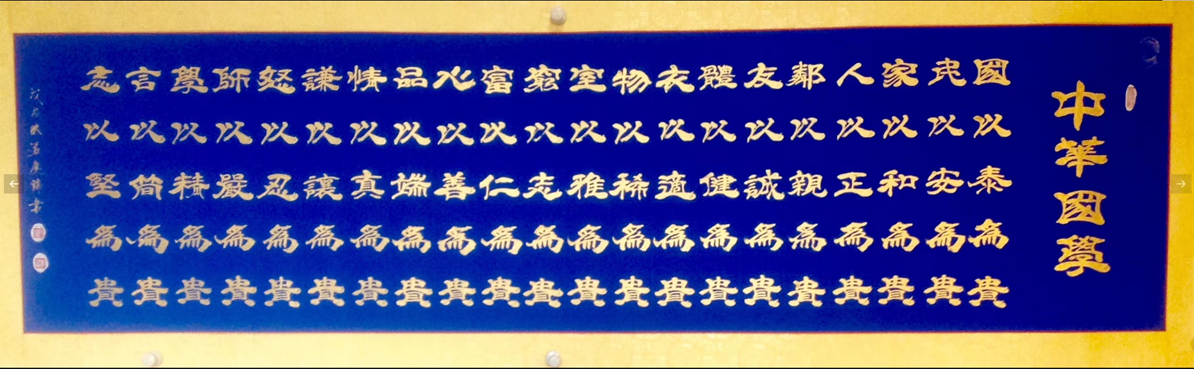 中華國學
國以泰為貴
民以安為貴
家以和為貴
人以正為貴
鄰以親為貴
友以誠為貴
體以健為貴
衣以適為貴
物以稀為貴
室以雅為貴
窮以志為貴
富以仁為貴
心以善為貴
品以端為貴
情以真為貴
謙以讓為貴
怒以忍為貴
師以嚴為貴
學以精為貴
言以簡為貴
志以堅為貴
戊戌秋 書